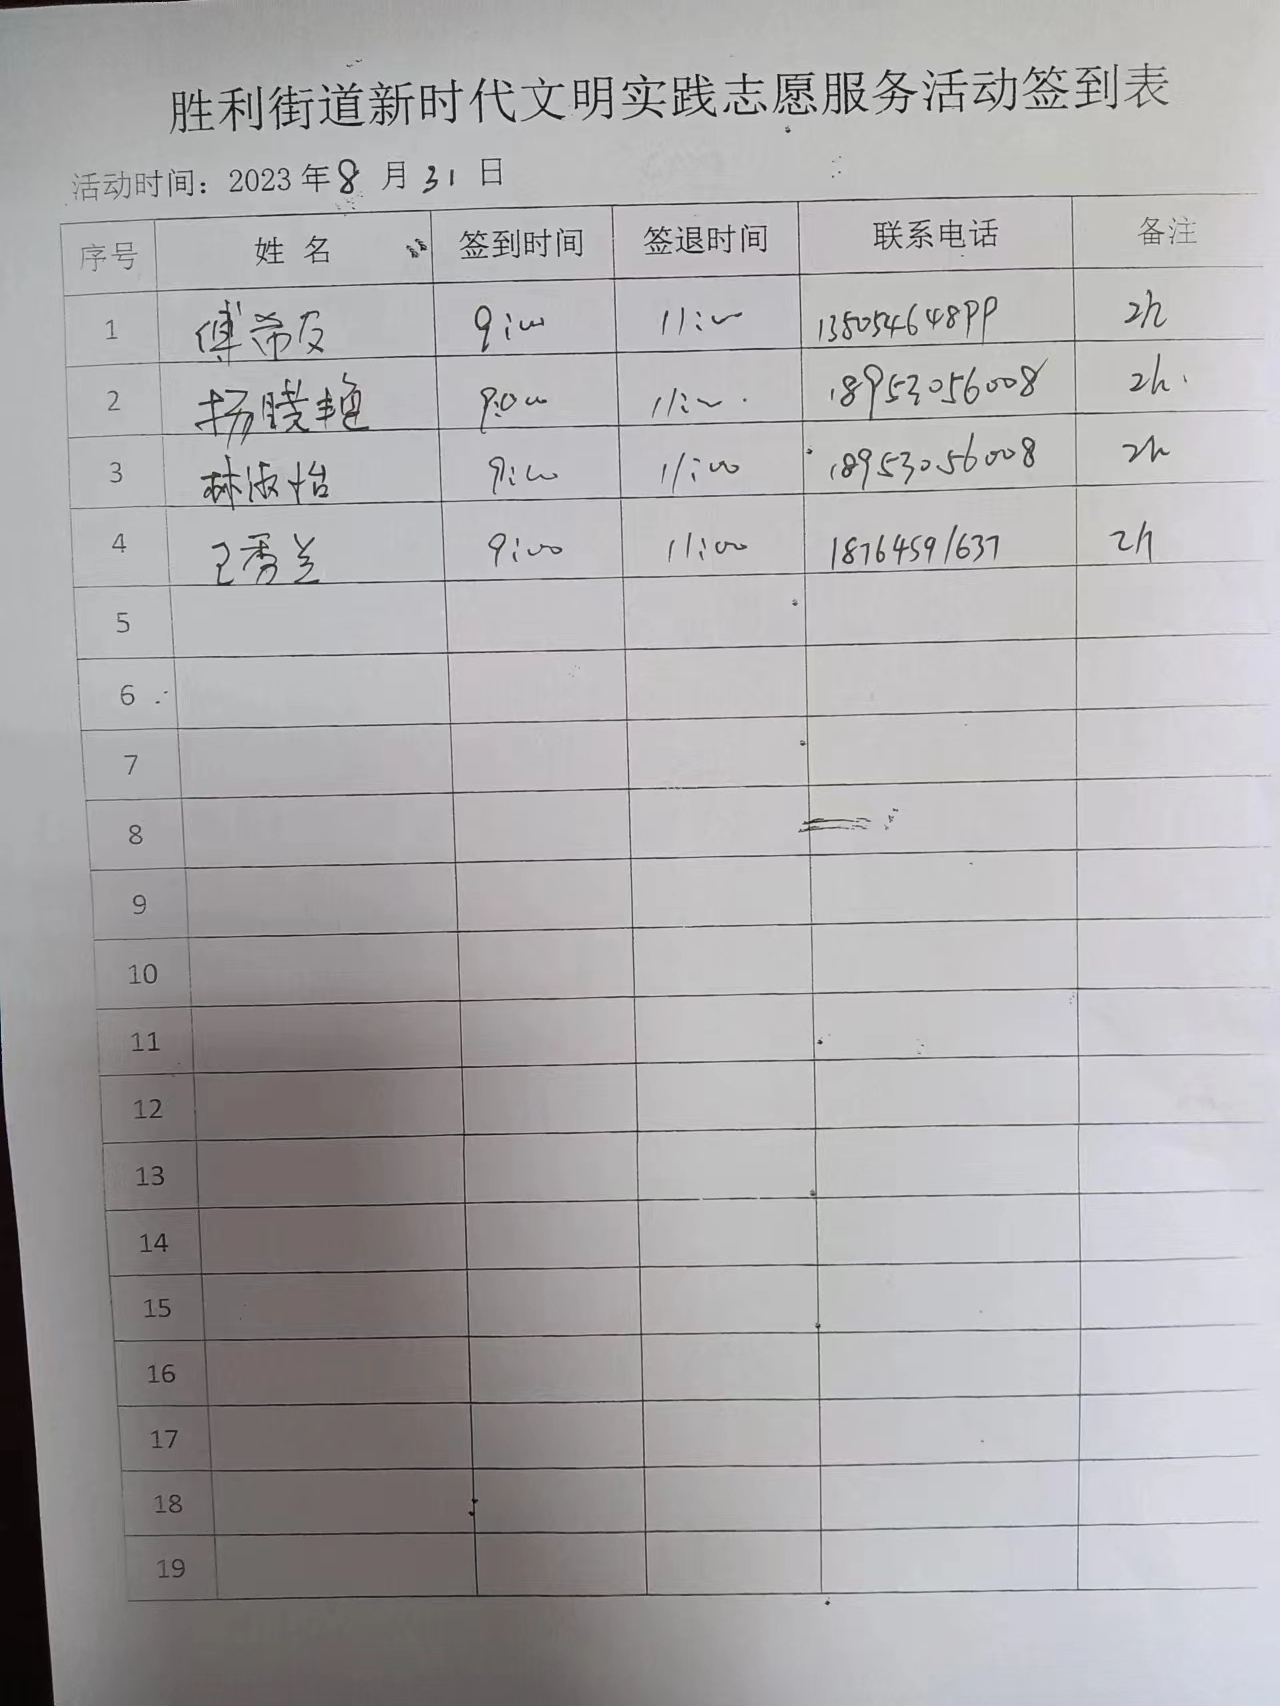 胜利街道新时代文明实践志愿服务活动签到表
活动时间：2023年8月31日
序号 姓名 签到时间 签退时间 联系电话 备注
1 傅希友 9:00 11:00 13505464899 2h
2 杨晓艳 9:00 11:00 18953056008 2h
3 林淑怡 9:00 11:00 18953056008 2h
4 王秀兰 9:00 11:00 18764591637 2h
5
6
7
8
9
10
11
12
13
14
15
16
17
18
19